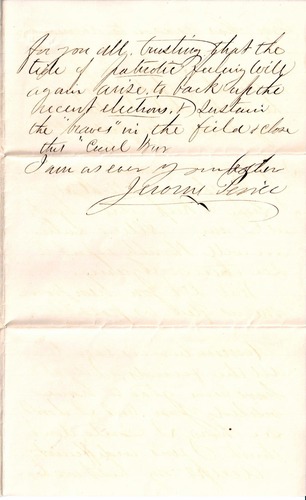 for you all, trusting that the
tide of patriotic feeling will
again arise, to back up the
recent elections, & sustain
the "braves" in the field & close
this "Cruel War
I am as ever your
Jerome Peirce